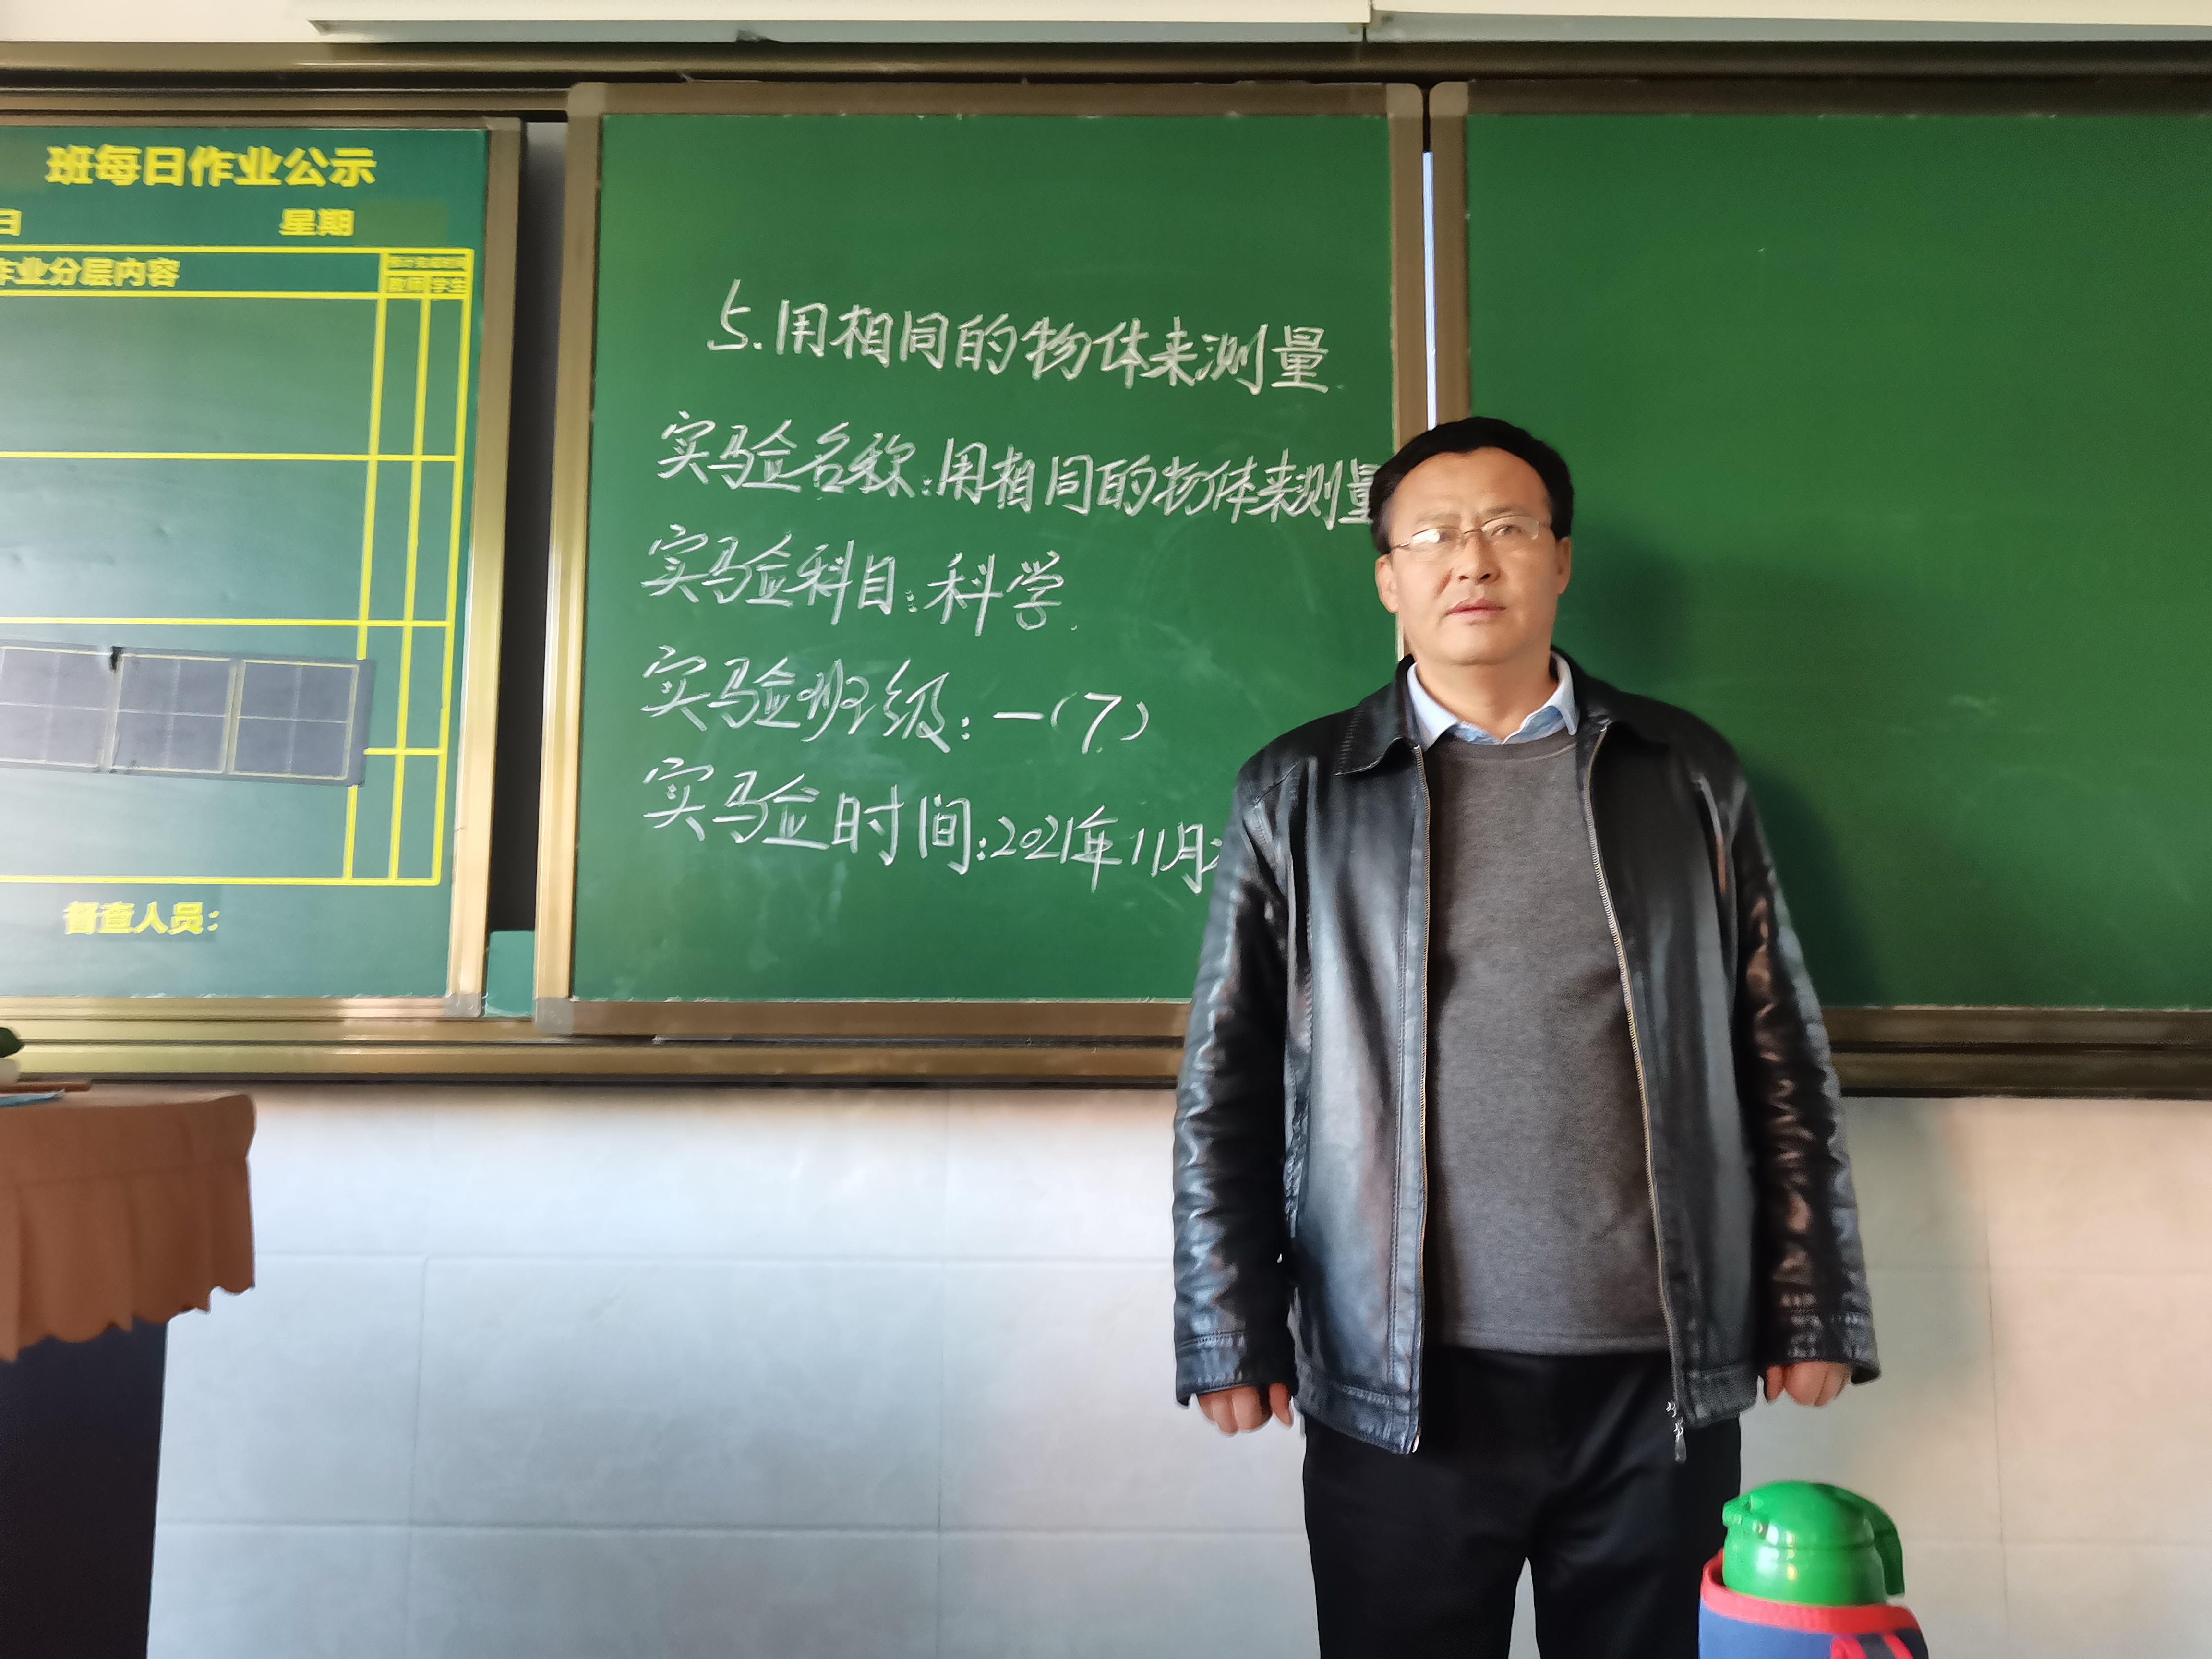 班每日作业公示
日 星期
作业分层内容
教师 学生
督查人员:
5.用相同的物体来测量
实验名称:用相同的物体来测量
实验科目:科学
实验班级:一(7)
实验时间:2021年11月